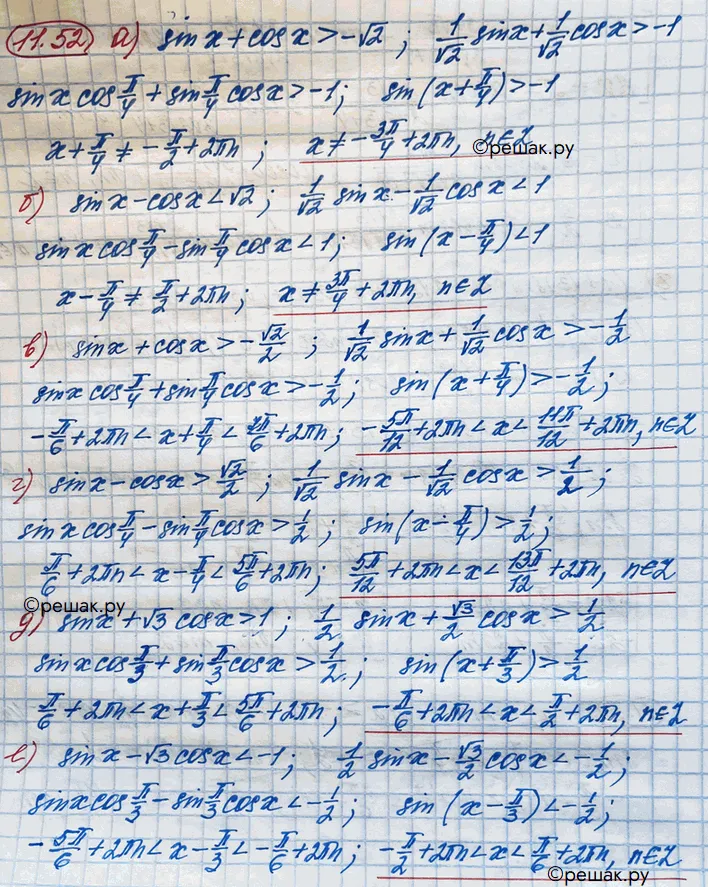 11.52 а) sin x + cos x > -√2 ; 1/√2 sin x + 1/√2 cos x > -1
sin x cos π/4 + sin π/4 cos x > -1 ; sin (x + π/4) > -1
x + π/4 ≠ -π/2 + 2πn ; x ≠ -3π/4 + 2πn, n∈Z
©решак.ру
б) sin x - cos x < √2 ; 1/√2 sin x - 1/√2 cos x < 1
sin x cos π/4 - sin π/4 cos x < 1 ; sin (x - π/4) < 1
x - π/4 ≠ π/2 + 2πn ; x ≠ 3π/4 + 2πn, n∈Z
в) sin x + cos x > -√2/2 ; 1/√2 sin x + 1/√2 cos x > -1/2
sin x cos π/4 + sin π/4 cos x > -1/2 ; sin (x + π/4) > -1/2 ;
-π/6 + 2πn < x + π/4 < 7π/6 + 2πn ; -5π/12 + 2πn < x < 11π/12 + 2πn, n∈Z
г) sin x - cos x > √2/2 ; 1/√2 sin x - 1/√2 cos x > 1/2 ;
sin x cos π/4 - sin π/4 cos x > 1/2 ; sin (x - π/4) > 1/2 ;
π/6 + 2πn < x - π/4 < 5π/6 + 2πn ; 5π/12 + 2πn < x < 13π/12 + 2πn, n∈Z
©решак.ру
д) sin x + √3 cos x > 1 ; 1/2 sin x + √3/2 cos x > 1/2
sin x cos π/3 + sin π/3 cos x > 1/2 ; sin (x + π/3) > 1/2
π/6 + 2πn < x + π/3 < 5π/6 + 2πn ; -π/6 + 2πn < x < π/2 + 2πn, n∈Z
е) sin x - √3 cos x < -1 ; 1/2 sin x - √3/2 cos x < -1/2 ;
sin x cos π/3 - sin π/3 cos x < -1/2 ; sin (x - π/3) < -1/2 ;
-5π/6 + 2πn < x - π/3 < -π/6 + 2πn ; -π/2 + 2πn < x < π/6 + 2πn, n∈Z
©решак.ру